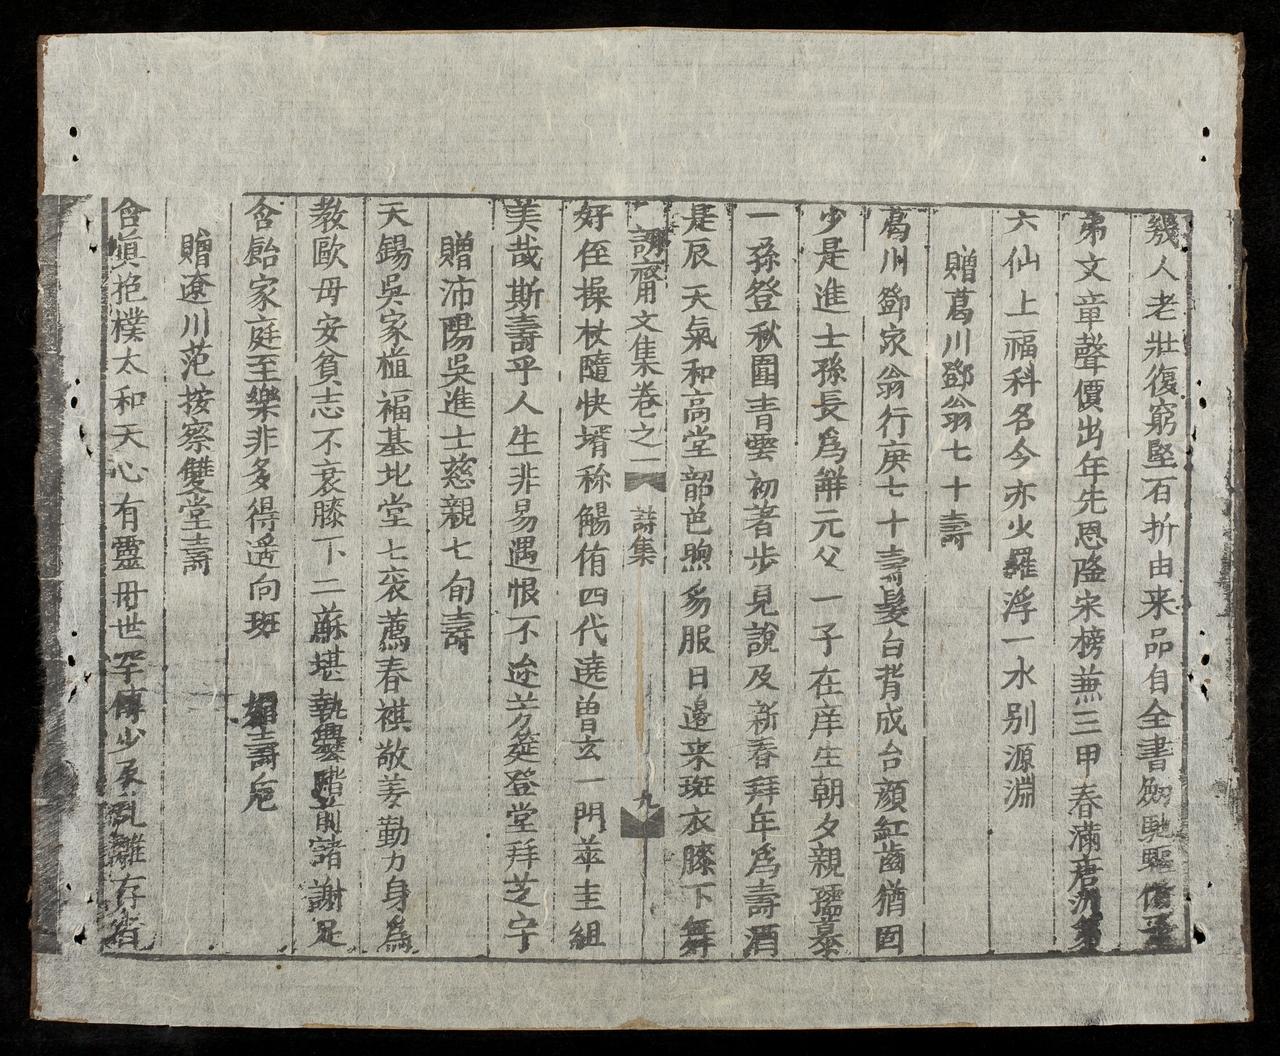 幾人老壯復窮堅石折由来品自全書劒馳驅儋
弟文章聲價出年先恩隆宋榜兼三甲春滿唐洲第
六仙上福科名今亦火羅浮一水別源淵
贈葛川鄧翁七十壽
葛川鄧家翁行庚七十壽髮白背成台顔紅齒猶固
少是進士孫長為解元父一子在庠生朝夕親孺慕
一孫登秋圍青雲初著步見說及新春拜年為壽酒
是辰天氣和高堂韶芭煦豸服日邊来斑衣膝下舞
謝齋文集卷之一 詩集 九
好侄操杖隨快壻称觴侑四代遶曾玄一門萃圭組
美哉斯壽乎人生非易遇恨不迯芳筵登堂拜芝宇
贈沛陽吳進士慈親七旬壽
天錫吳家植福基北堂七袠薦春祺敬姜勤力身為
教歐母安貧志不衰膝下二蘇堪執爨階前諸謝足
含飴家庭至樂非多得遥向斑壽卮
贈遼川范按察雙堂壽
含真抱樸太和天心有靈毌世罕傳少辰乱離存